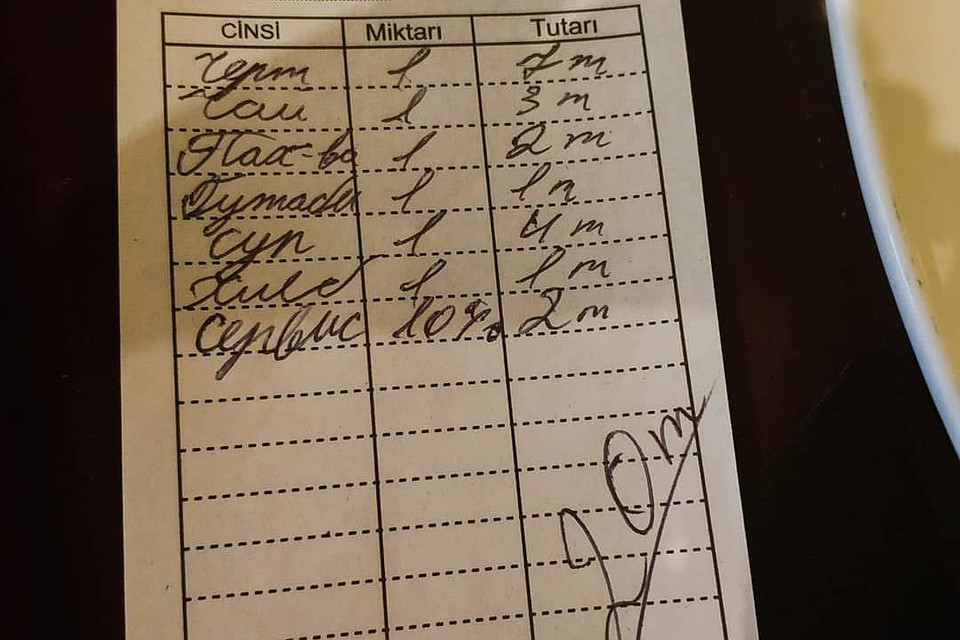 CİNSİ Miktarı Tutarı
Черт 1 7 m
Чай 1 3 m
Пах-ва 1 2 m
Гутабы 1 1 m
Суп 1 4 m
Хлеб 1 1 m
Сервис 10% 2 m
20 m